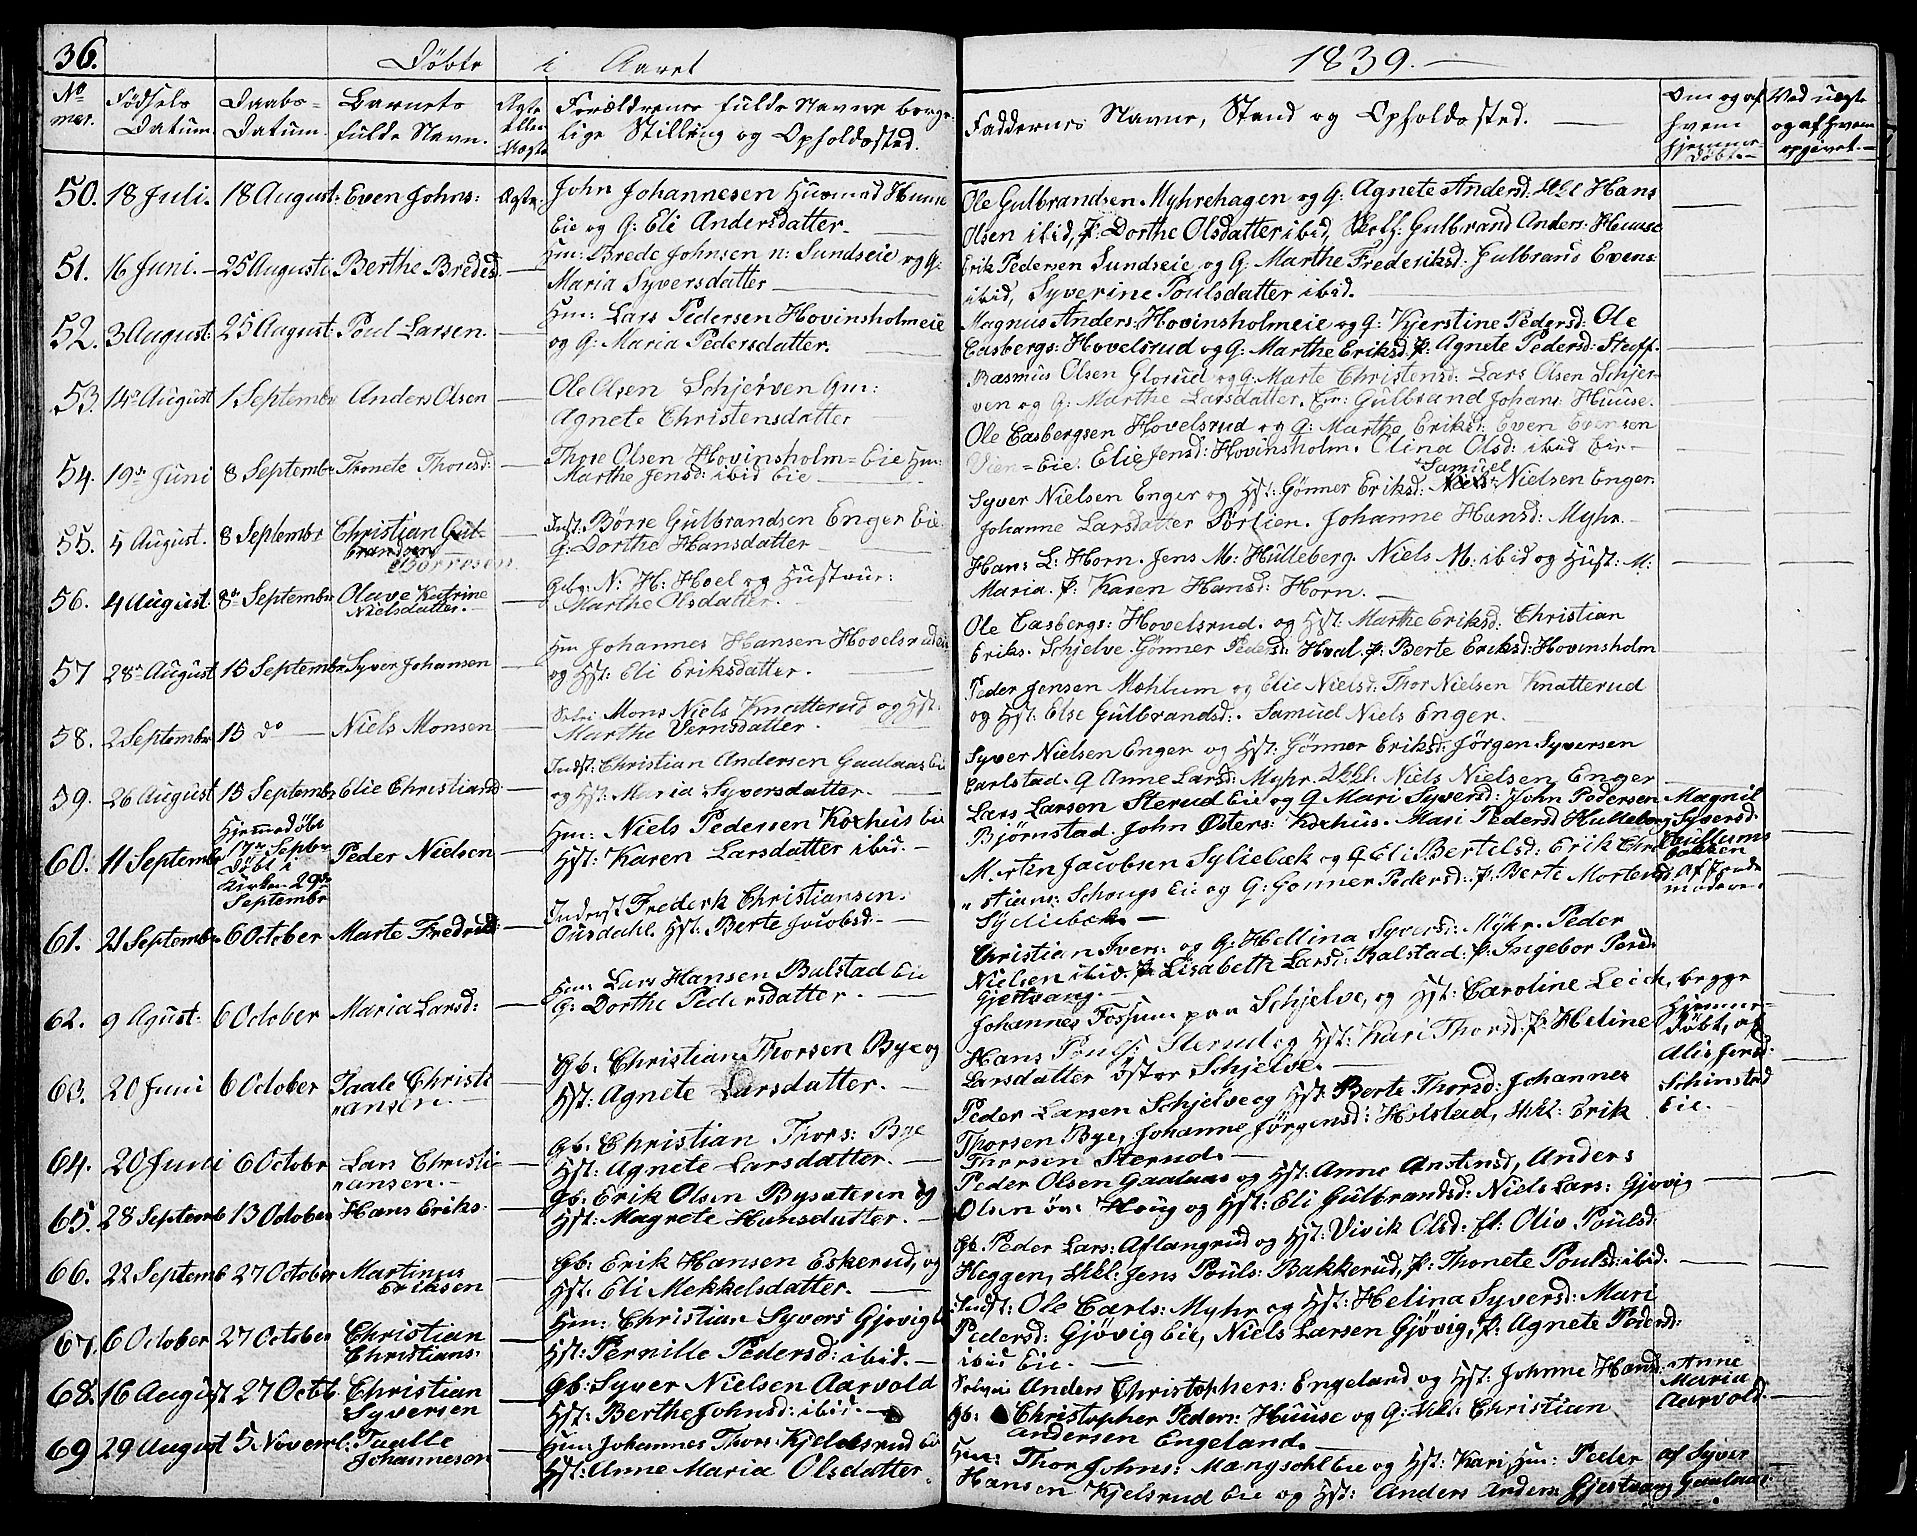 36.
Døbte i Aaret 1839.
No mer. Fødsels Datum. Daabs- Datum. Barnets fulde Navn. Ægte eller Uægte Forældrenes fulde Navne borger- lige Stilling og Opholdssted. Faddernes Navne, Stand og Opholdssted. Om og af hvem hjemme- døbt. Ved uægte og af hvem opgivet.
50. 18 Juli. 18 August: Even Johns: Ægte: John Johannesen Huusmd Huuse
Eie og G: Eli Andersdatter.
Ole Gulbrandsen Myhrehagen og G: Agnete Andersd: Ukl Hans
Olsen ibid, P: Dorthe Olsdatter ibid, Gulbrand Anders: Huuse
51. 16 Juni. 25 August Berthe Bredes Hm: Brede Johnsen n: Sundseie og G:
Maria Syversdatter
Erik Pedersen Sundseie og G: Marthe Frederiksd. Gulbrand Evens:
ibid, Syverine Poulsdatter ibid.
52. 3 August: 25 August: Poul Larsen. Hm: Lars Pedersen Hovinsholmeie
og G: Maria Pedersdatter.
Magnus Anders: Hovinsholmeie og G: Kjerstine Pedersd: Ole
Casbergs: Hovelsrud og G: Marthe Eriksd: P: Agnete Pedersd: Staff.
53. 14 August 1 Septembr Anders Olsen Ole Olsen Schjerven Gm:
Agnete Christensdatter
Rasmus Olsen Glorud og G. Marte Christensd: Lars Olsen Schjer-
ven og G: Marthe Larsdatter. Em: Gulbrand Johans: Huuse.
54. 19de Juni 8 Septembr Thonete Thoresd: Thore Olsen Hovinsholm=Eie Hm:
Marthe Jensd: ibid Eie
Ole Casbergsen Hovelsrud og G: Marthe Eriksd: Even Evensen
Vien=Eie. Elie Jensd: Hovinsholm. Elina Olsd: ibid Eie
55. 4 August. 8 Septembr Christian Gul-
brandsen
Børresen
Inst: Børre Gulbrandsen Enger Eie
G: Dorthe Hansdatter
Samuel
Syver Nielsen Enger og Hst: Gønner Eriksd: Nielsen Enger
Johanne Larsdatter Pørlien. Johanne Hansd: Myhr.
56. 4 August: 8de Septembr Olave Katrine
Nielsdatter.
Gbg: N: H: Hoel og Hustrue:
Marthe Olsdatter.
Hans L: Horn. Jens M: Hulleberg. Niels M: ibid og Hust: M:
Maria. P: Karen Hansd: Horn.
57 28de August 15 Septembr Syver Johansen Hm Johannes Hansen Hovelsrudeie
og Hst: Eli Eriksdatter.
Ole Casbergs: Hovelsrud. og Hst: Marthe Eriksd: Christian
Eriks. Schjelve. Gønner Pedersd: Hval. P: Berte Eriksd: Hovinsholm
58. 2 Septembr 15 do Niels Monsen Selvei Mons Niels Knatterud og Hst:
Marthe Vernsdatter
Peder Jensen Mæhlum og Elie Nielsd: Thor Nielsen Knatterud
og Hst: Else Gulbrandsd:. Samuel Niels Enger.
59. 26 August 15 Septembr Elie Christiansd Indst: Christian Andersen Gaalaas Eie
og Hst: Maria Syversdatter.
Syver Nielsen Enger og Hst: Gønner Eriksd: Jørgen Syversen
Carlstad. G Anne Larsd: Myhr. Ukl. Niels Nielsen Enger
60. 11 Septembr Hjemmedøbt
17de Septbr
Døbt i
Kirken 29de
Septembr
Peder Nielsen Hm: Niels Pedersen Korhus Eie
Hst: Karen Larsdatter ibid.
Lars Larsen Sterud Eie og G Mari Syversd: John Pedersen
Bjørnstad. John Østers: Korhus. Mari Pedersd Hulleberg
Magnil
Syversd:
Gullums
bakken
61. 21 Septembr 6 October Marte Fredriksd: Inderst Frederk Christiansen.
Ousdahl. Hst: Berte Jacobsd:
Morten Jacobsen Syliebæk og G Eli Bertelsd: Erik Chri-
stians: Schougs Eie og G: Gonner Pedersd: P: Berte Mortensd:
Syliebæk
62. 9 Agust. 6 October Maria Larsd: Hm: Lars Hansen Balstad Eie
G: Dorthe Pedersdatter.
Christian Ivers: og G: Hellina Syversd: Myhr. Peder
Nielsen ibid. P: Lisabeth Larsd: Balstad: P: Ingebor Persd:
Gjestvang.
63. 20 Juni 6 October Taale Christi-
ansen.
Gb. Christian Thorsen Bye og
Hst: Agnete Larsdatter.
Johannes Fossum paa Schjelve, og Hst: Caroline Leich,
Hans Pouls: Sterud og Hst: Kari Thorsd: P: Heline
Larsdatter øster Schjelve.
begge
hjemme-
døbt, af
Alis Jensd:
Schinstad
Eie.
64. 20 Juni 6 Octobr Lars Christi-
ansen.
Gb: Christian Thors: Bye
Hst: Agnete Larsdatter.
Peder Larsen Schjelve og Hst: Berte Thorsd: Johannes
Thorsen Bye, Johanne Jørgensd: Holstad, Ukl: Erik
Thorsen Sterud.
65. 28 Septemb 13 October Hans Eriks. Gb: Erik Olsen Bysæteren og
Hst: Magrete Hansdatter.
Peder Olsen Gaalaas og Hst: Anne Anstensd, Anders
Olsen øv: Houg og Hst: Eli Gulbrandsd: Niels Lars: Gjøvig
66. 22 Septemb 27 October Martinus
Eriksen
Gb: Erik Hansen Eskerud, og
Hst: Eli Mekkelsdatter.
Gb. Peder Lars: Aflangrud og Hst: Vivik Olsd: P: Oliv Poulsd:
Heggen, Ukl: Jens Pouls: Bakkerud, P: Thonete Poulsd: ibid.
67. 6 October 27 October Christian
Christians:
Hm: Christian Syvers Gjøvig Eie
Hst: Pernille Pedersd: ibid.
Indst: Ole Carls: Myhr og Hst: Helina Syversd: Mari
Pedersd: Gjøvig Eie, Niels Larsen Gjøvig, P: Agnete Pedersd:
ibid Eie.
68. 16 August 27 Octb Christian
Syversen
Gb: Syver Nielsen Aarvold
Hst: Berthe Johnsd: ibid.
Selvei Anders Christophers: Engeland og Hst: Johnne Hansd:
Gb: Christopher Peders: Huuse og G: Ukl: Christian
Andersen Engeland.
Anne
Maria
Aarvold.
69 29 August 5 Novembr: Taalle
Johannesen
Hm: Johannes Thors: Kjelsrud Eie
Hst: Anne Maria Olsdatter.
Hm: Thor Johns: Mængsohl Eie og Hst: Kari, Hm: Peder
Hansen Kjelsrud Eie og Hst: Anders Anders: Gjestvang
af Syver
Gaalaas: